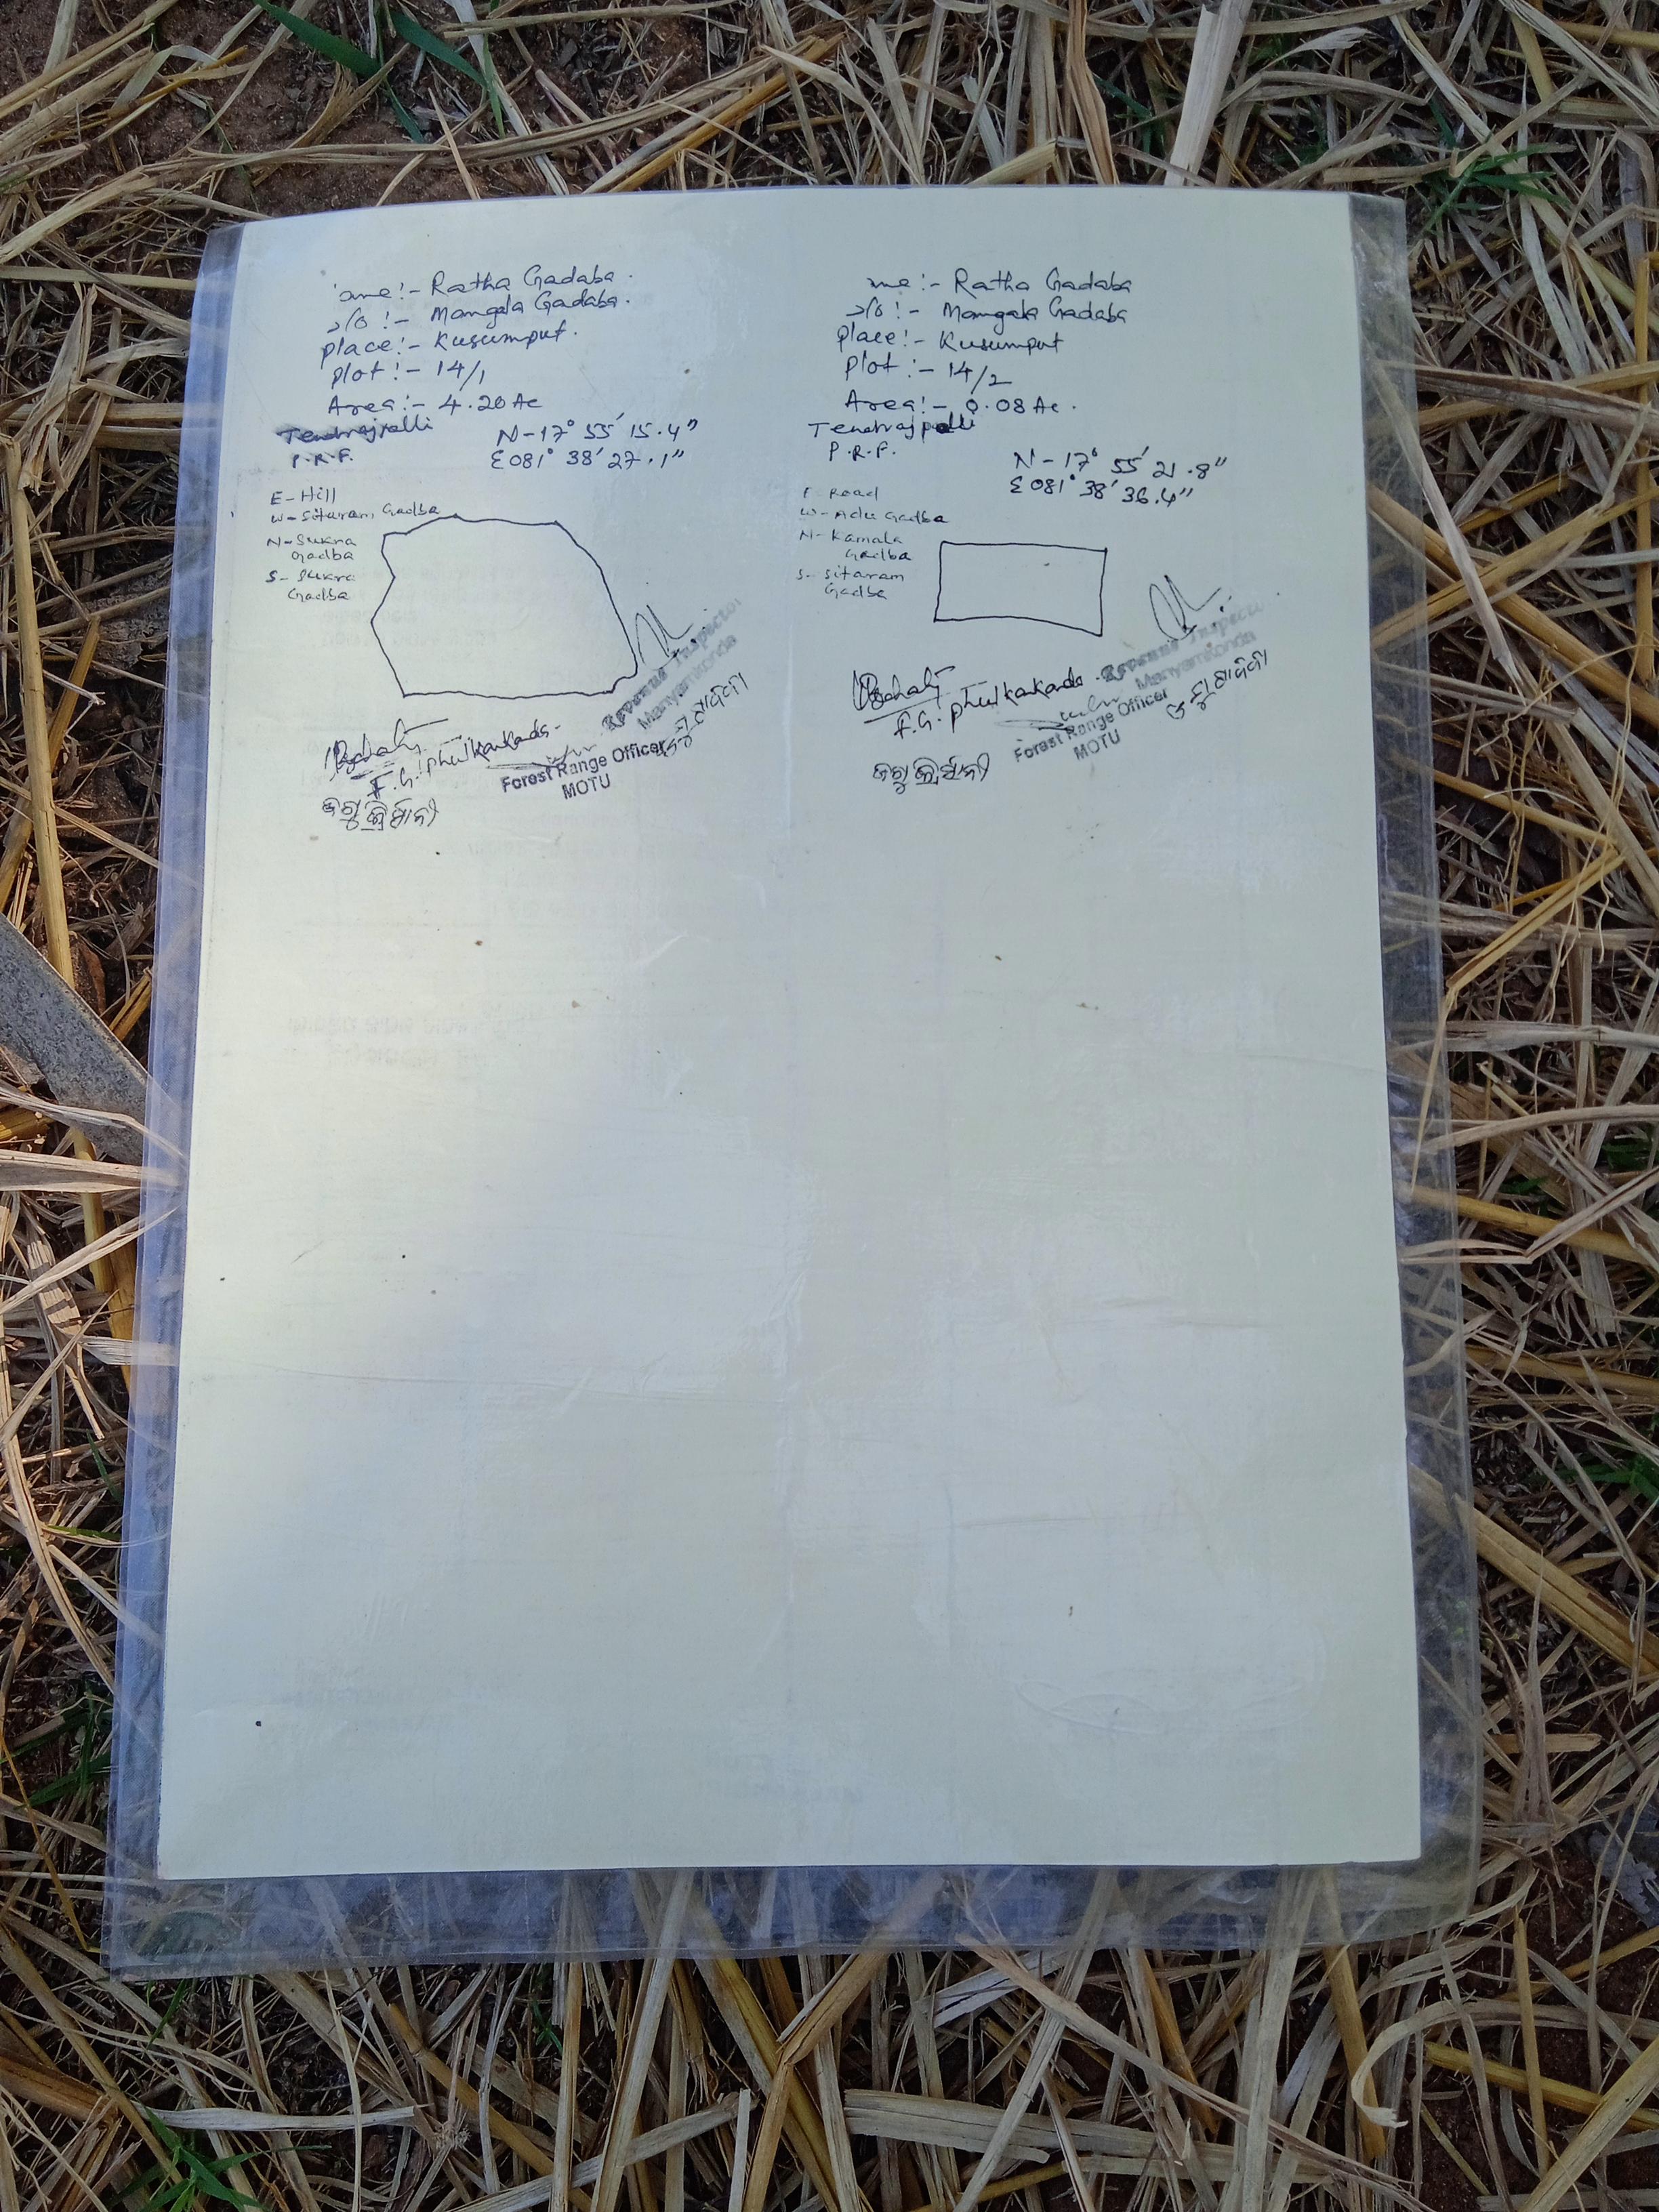 ame:- Ratha Gadaba.
s/o:- Mangala Gadaba.
place:- Kusumput.
plot:- 14/1
Area:- 4.20 Ac
Tendrajpalli
P.R.F.
N-17° 55' 15.4"
E081° 38' 27.1"
E- Hill
W- Sitaram Gadba
N- Sukra
Gadba
S- Sukra
Gadba
Revenue Inspector
Manyamkonda
F.G. Phulkankonda
Forest Range Officer
MOTU
me:- Ratha Gadaba
s/o:- Mangala Gadaba
place:- Kusumput
plot:- 14/2
Area:- 0.08 Ac.
Tendrajpalli
P.R.F.
N-17° 55' 21.8"
E081° 38' 36.4"
E- Road
W- Adu Gadba
N- Kamala
Gadba
S- Sitaram
Gadba
Revenue Inspector
Manyamkonda
F.G. Phulkankonda
Forest Range Officer
MOTU